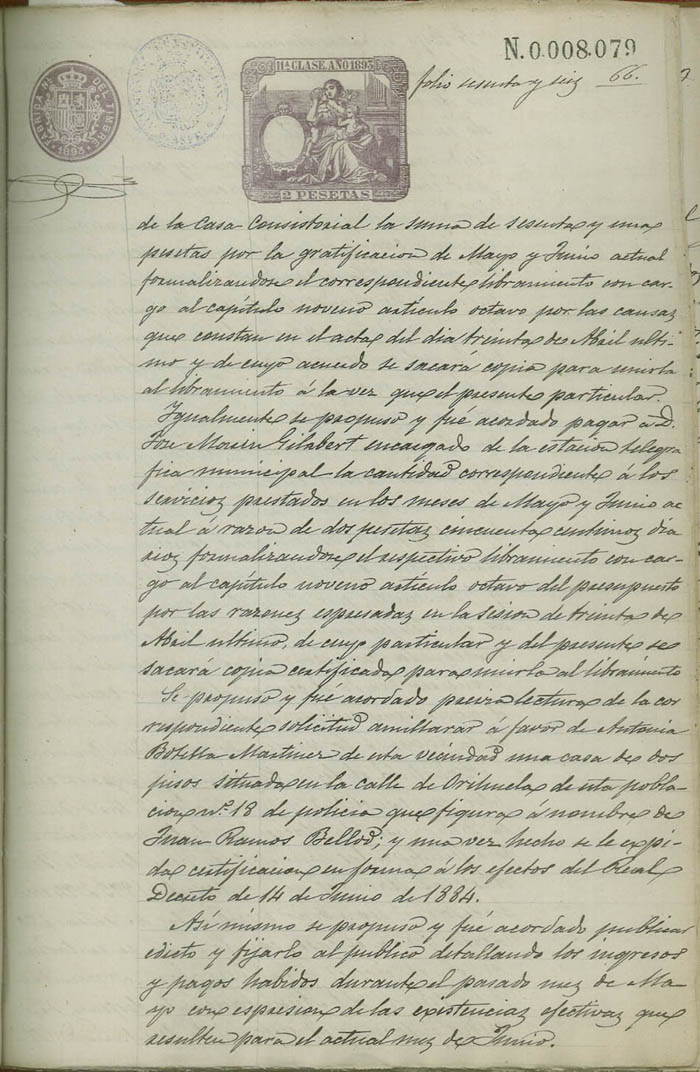 N.0.008.079
11ª CLASE. AÑO 1893
FABRICA Nal. DEL TIMBRE
1893
2 PESETAS
folio sesenta y seis 66.
de la Casa Consistorial la suma de sesenta y una
pesetas por la gratificacion de Mayo y Junio actual
formalizandose el correspondiente libramiento con car-
go al capítulo noveno artículo octavo por las causas
que constan en el acta del dia treinta de Abril ulti-
mo y de cuyo acuerdo se sacará copia para unirla
al libramiento á la vez que el presente particular.
Igualmente se propuso y fué acordado pagar a D.
Jose Gilabert encargado de la estacion telegra
fica municipal la cantidad correspondiente á los
servicios prestados en los meses de Mayo y Junio ac-
tual á razon de dos pesetas cincuenta centimos dia
rios formalizandose el respectivo libramiento con car-
go al capítulo noveno artículo octavo del presupuesto
por las razones espresadas en la sesion de treinta de
Abril ultimo, de cuyo particular y del presente se
sacará copia certificada para unirla al libramiento
Se propuso y fué acordado previa lectura de la cor
respondiente solicitud amillarar á favor de Antonia
Botella Martinez de esta vecindad una casa de dos
pisos situada en la calle de Orihuela de esta pobla-
cion nº. 18 de policia que figura á nombre de
Juan Ramos Bellod; y una vez hecho se le expi-
da certificacion en forma á los efectos del Real
Decreto de 14 de Junio de 1884.
Asi mismo se propuso y fué acordado publicar
edicto y fijarlo al publico detallando los ingresos
y pagos habidos durante el pasado mes de Ma-
yo con espresion de las existencias efectivas que
resulten para el actual mes de Junio.